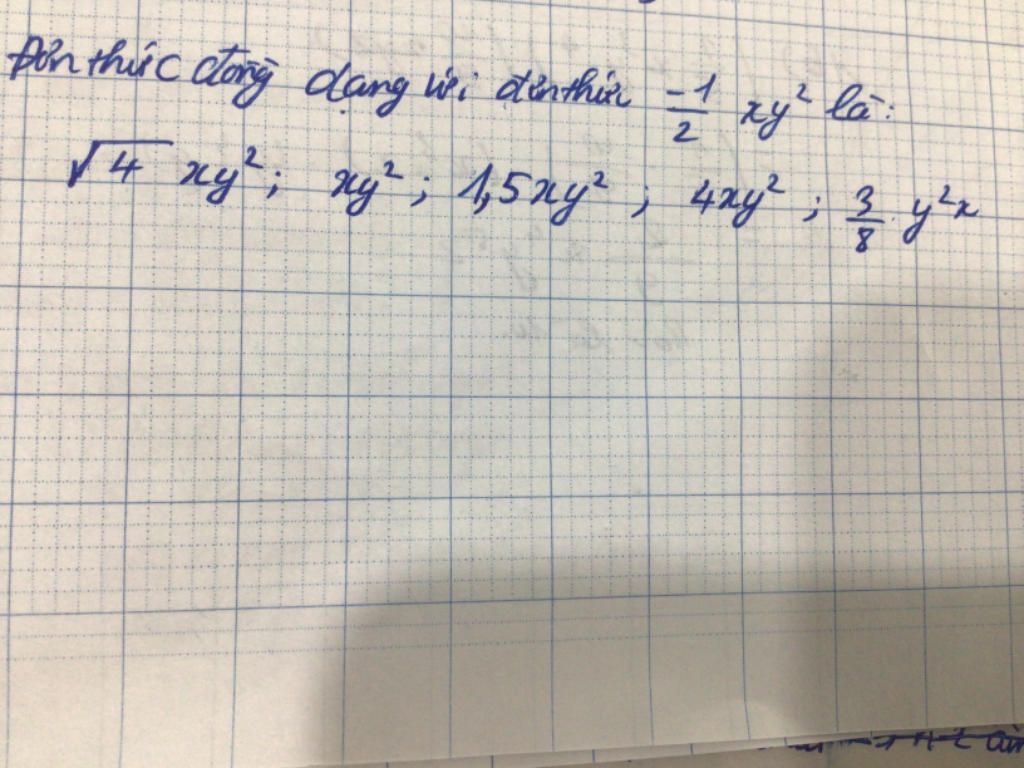 Đơn thức đồng dạng với đơn thức -1/2 xy² là:
√4 xy²; xy²; 1,5xy²; 4xy²; 3/8 y²x